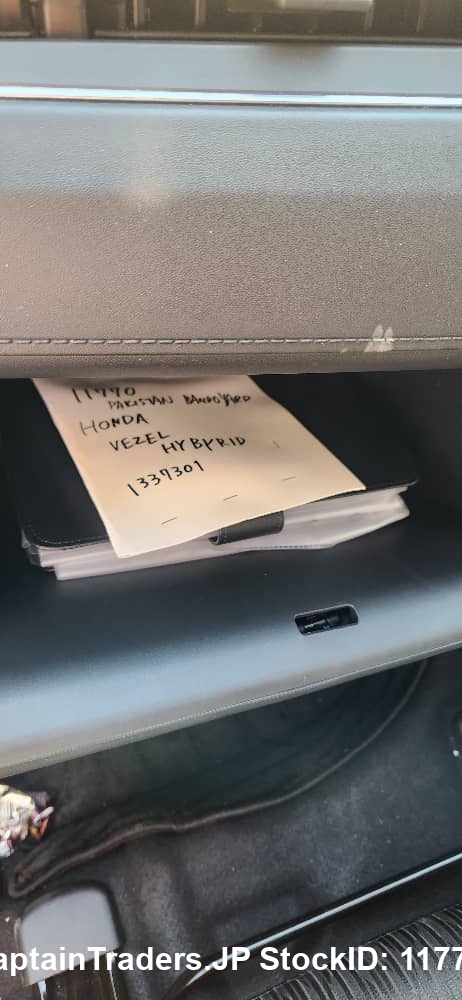 11770
PAKISTAN BANDO YARD
HONDA
VEZEL
HYBRID
1337301
aptainTraders.JP StockID: 1177